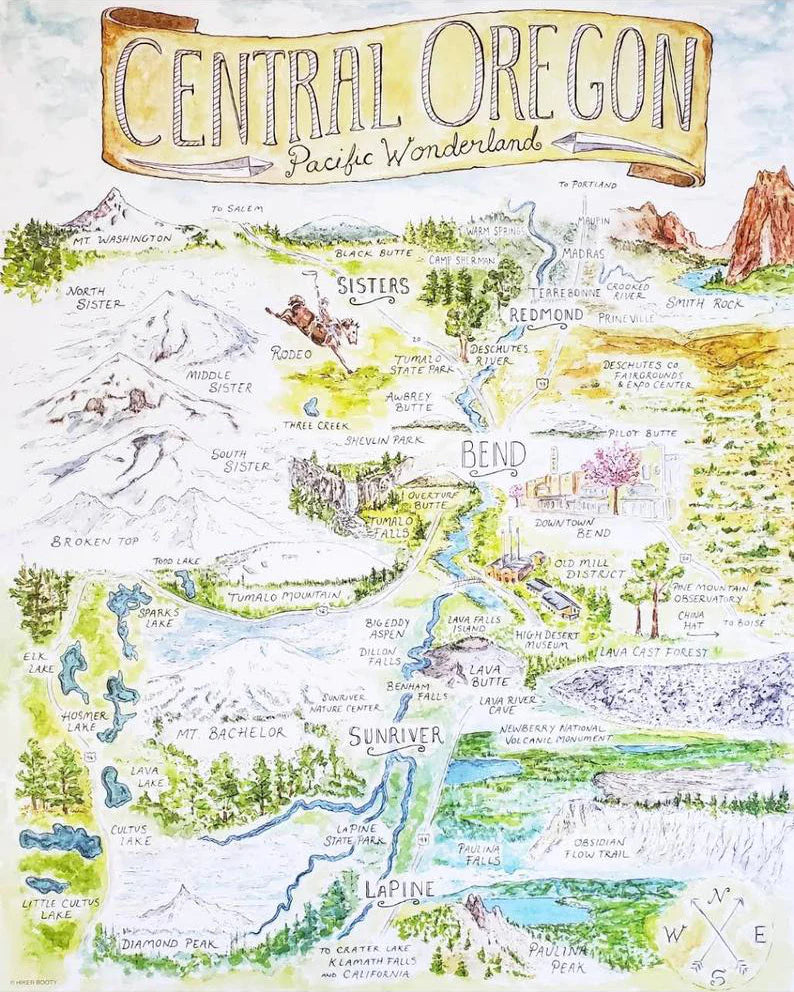 CENTRAL OREGON
Pacific Wonderland
TO PORTLAND
TO SALEM
MT. WASHINGTON
BLACK BUTTE
WARM SPRINGS
MAUPIN
CAMP SHERMAN
MADRAS
SISTERS
NORTH
SISTER
TERREBONNE
CROOKED
RIVER
SMITH ROCK
REDMOND
PRINEVILLE
RODEO
20
TUMALO
STATE PARK
DESCHUTES
RIVER
MIDDLE
SISTER
97
DESCHUTES CO.
FAIRGROUNDS
& EXPO CENTER
AWBREY
BUTTE
THREE CREEK
SHEVLIN PARK
PILOT BUTTE
BEND
SOUTH
SISTER
OVERTURF
BUTTE
TUMALO
FALLS
DOWNTOWN
BEND
BROKEN TOP
TODD LAKE
OLD MILL
DISTRICT
TUMALO MOUNTAIN
PINE MOUNTAIN
OBSERVATORY
SPARKS
LAKE
CHINA
HAT
TO BOISE
BIG EDDY
ASPEN
LAVA FALLS
ISLAND
HIGH DESERT
MUSEUM
DILLON
FALLS
LAVA CAST FOREST
ELK
LAKE
LAVA
BUTTE
BENHAM
FALLS
SUNRIVER
NATURE CENTER
LAVA RIVER
CAVE
HOSMER
LAKE
MT. BACHELOR
SUNRIVER
NEWBERRY NATIONAL
VOLCANIC MONUMENT
LAVA
LAKE
CULTUS
LAKE
LAPINE
STATE PARK
97
PAULINA
FALLS
OBSIDIAN
FLOW TRAIL
LITTLE CULTUS
LAKE
LAPINE
DIAMOND PEAK
TO CRATER LAKE
KLAMATH FALLS
AND CALIFORNIA
PAULINA
PEAK
N
W E
S
© HIKER BOOTY